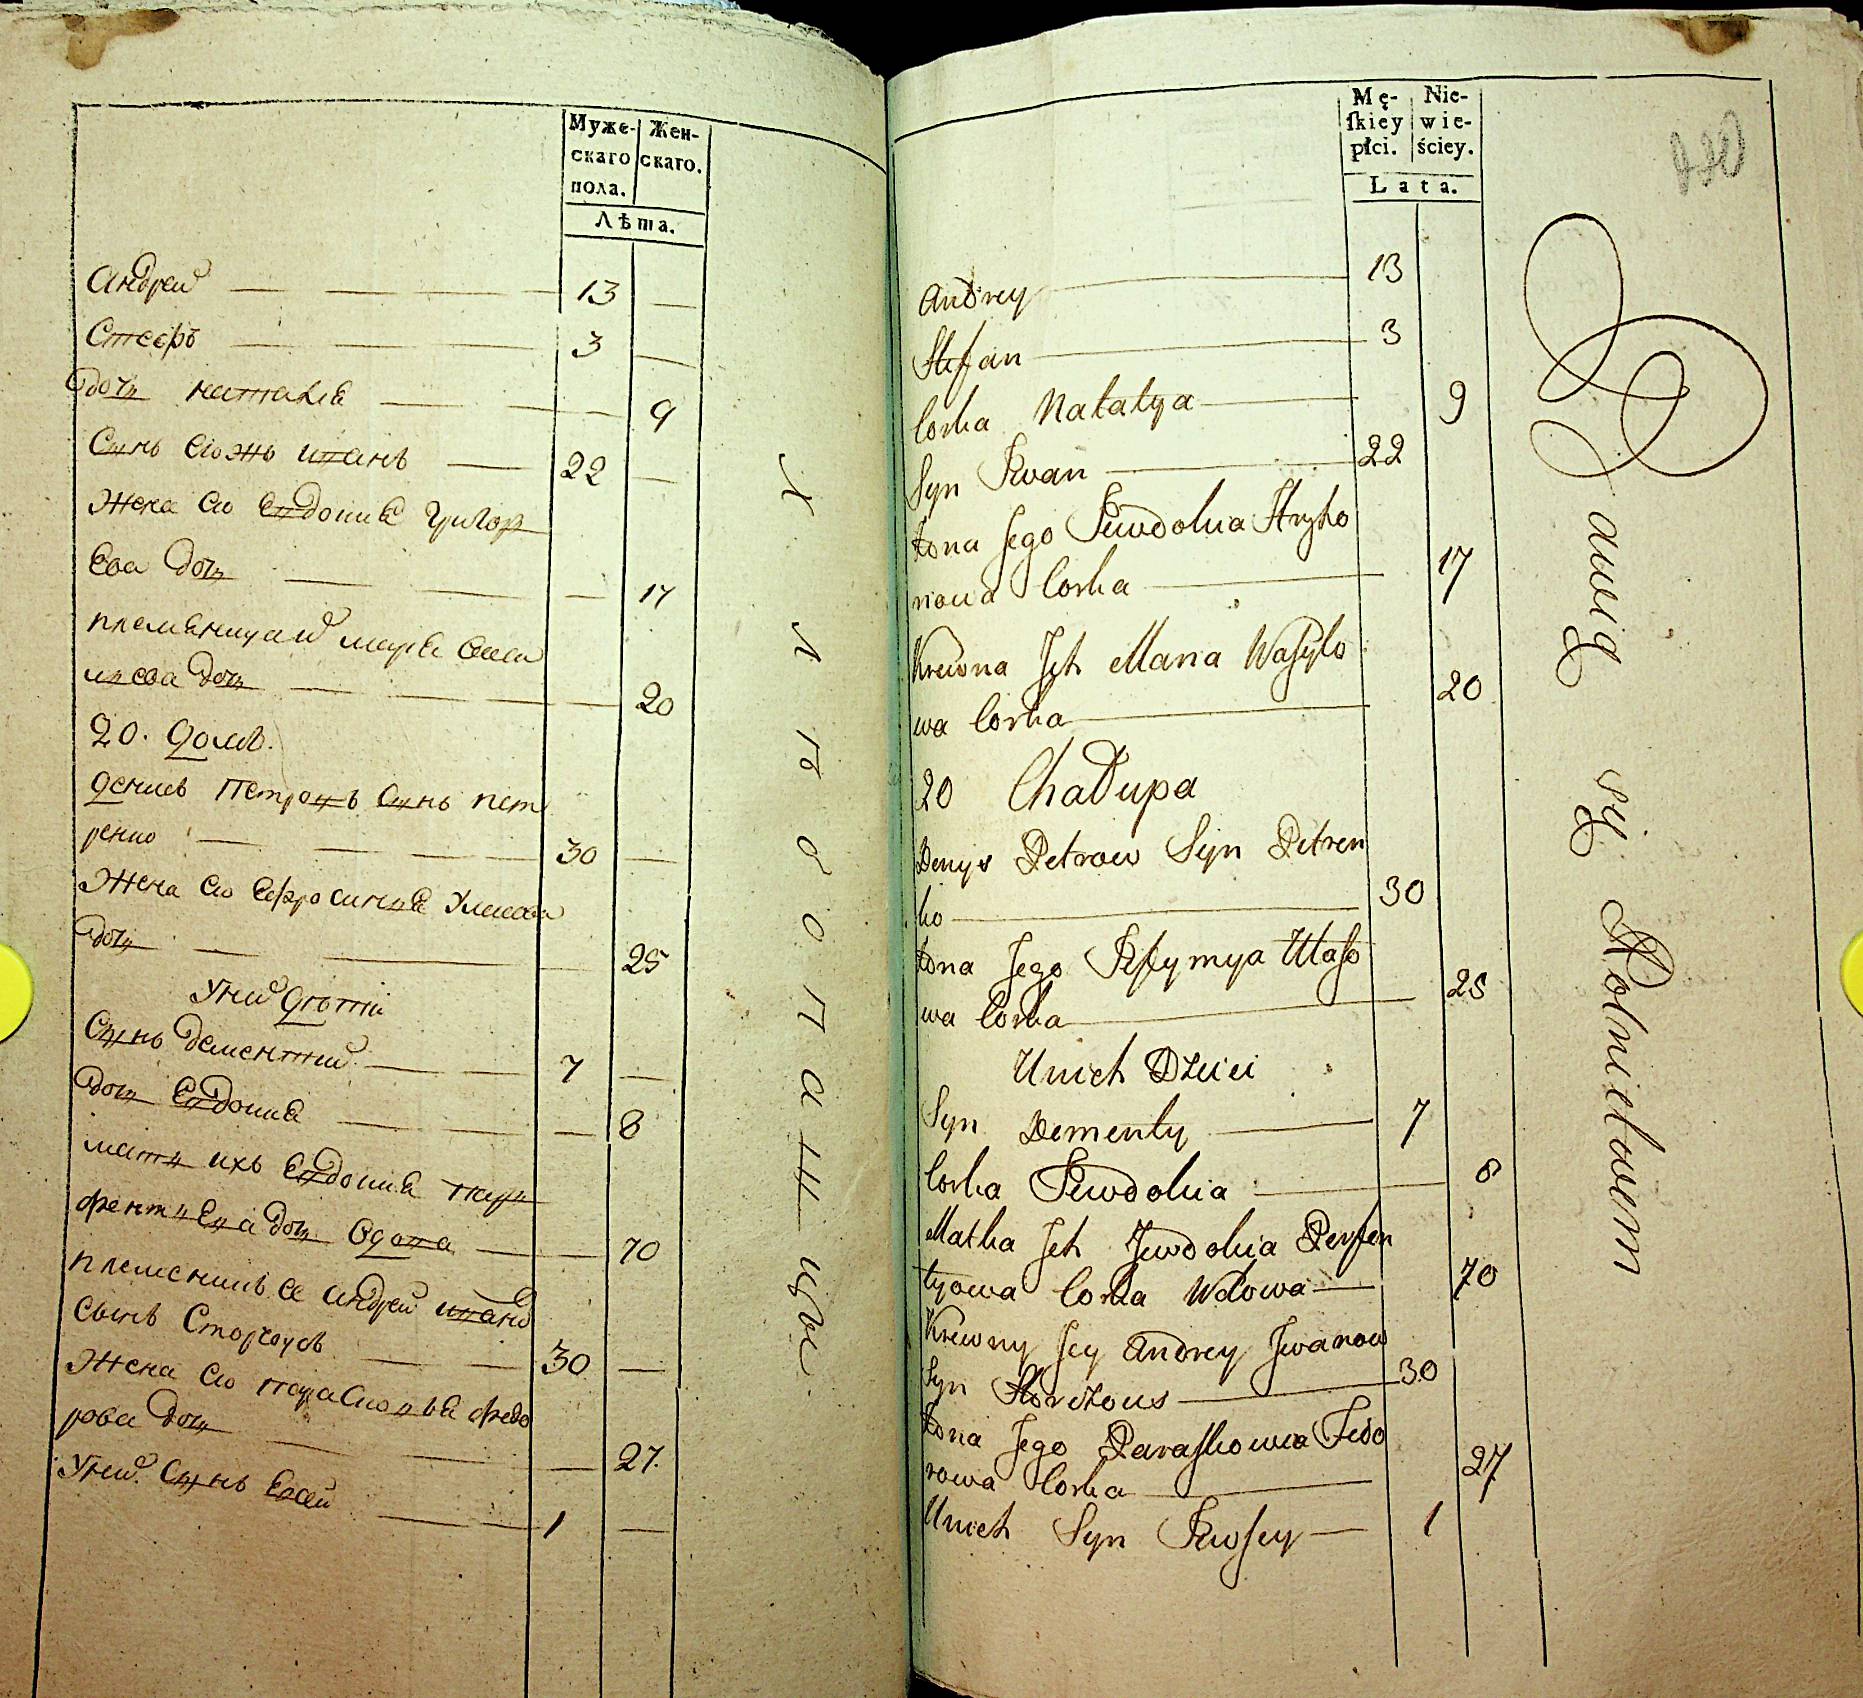 Муже-
скаго
пола.
Жен-
скаго.
Лѣта.
Андрей 13
Стефъ 3
дочь наталіѧ 9
Сынъ єгожъ иванъ 22
Жена єго Євдокиѧ Григор
ева дочь 17
племѣницаи марѣѧ васи
лиева дочь 20
20. домъ.
денисъ Петровъ Сынъ пет
ренко 30
Жена єго єфросиниѧ Уласова
дочь 25
Унихъ дѣти
Сынъ дементий 7
дочь Євдокиѧ 8
мать ихъ Євдокиѧ пар
фентиева дочь вдова 70
племеникъ єѧ андрей иванов
сынъ Сторчоусъ 30
Жена єго парасковиѧ федо
рова дочь 27.
Унихъ Сынъ Євсей 1
Хлѣбопашцы.
Mę-
ſkiey
płci.
Nie-
wie-
ściey.
Lata.
Andrey 13
Stefan 3
Corka Natalya 9
Syn Jwan 22
żona Jego Jewdokia Hryho
rowa Corka 17
Krewna Jch Maria Wasylo
wa Corka 20
20 Chałupa
Denys Petrow Syn Petren
ko 30
żona Jego Jefymya Ułaso
wa Corka 25
Unich Dzieci
Syn Dementy 7
Corka Jewdokia 8
Matka Jch Jewdokia Perfen
tyowa Corka Wdowa 70
Krewny Jey Andrey Jwanow
Syn Storczous 30
żona Jego Paraskowia Fedo
rowa Corka 27
Unich Syn Jewsey 1
Bawią się Rolnictwem